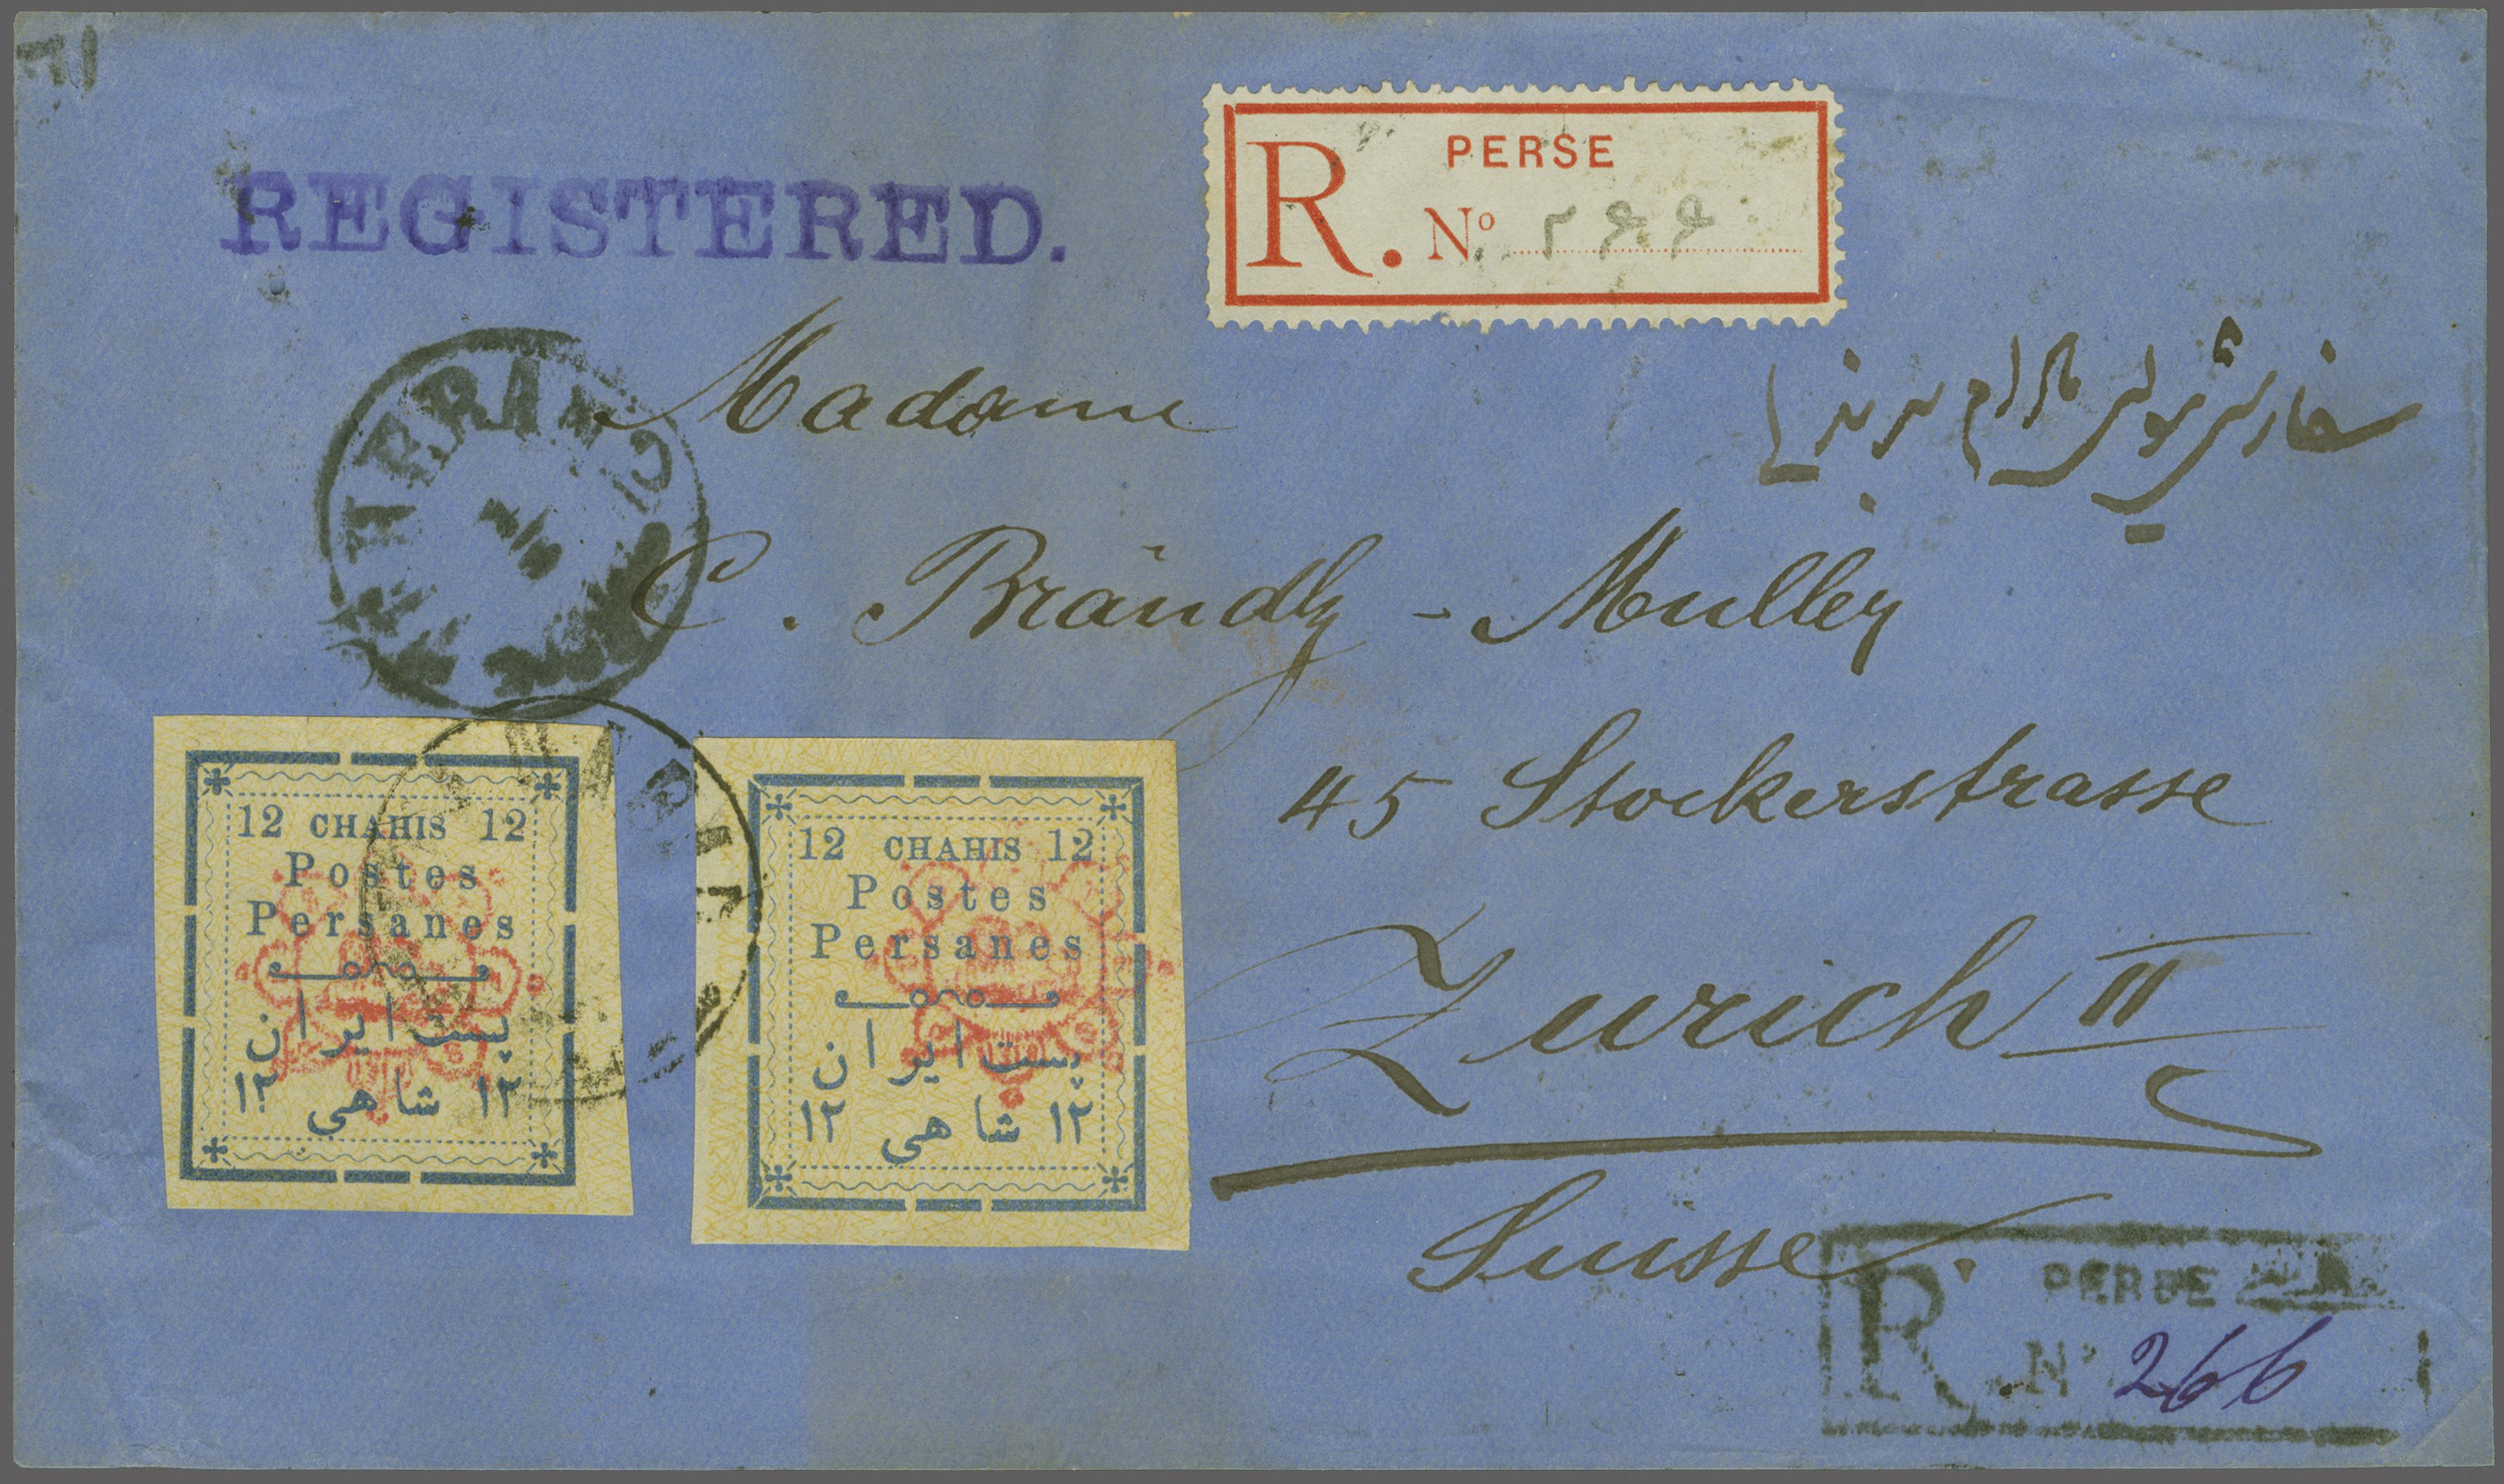 REGISTERED.
R. PERSE
Nº ۲۶۶
Madame
C. Brändly - Mulley
45 Stockerstrasse
Zurich II
Suisse.
12 CHAHIS 12
Postes
Persanes
پست ایران
۱۲ شاهی ۱۲
12 CHAHIS 12
Postes
Persanes
پست ایران
۱۲ شاهی ۱۲
R. PERSE
Nº 266